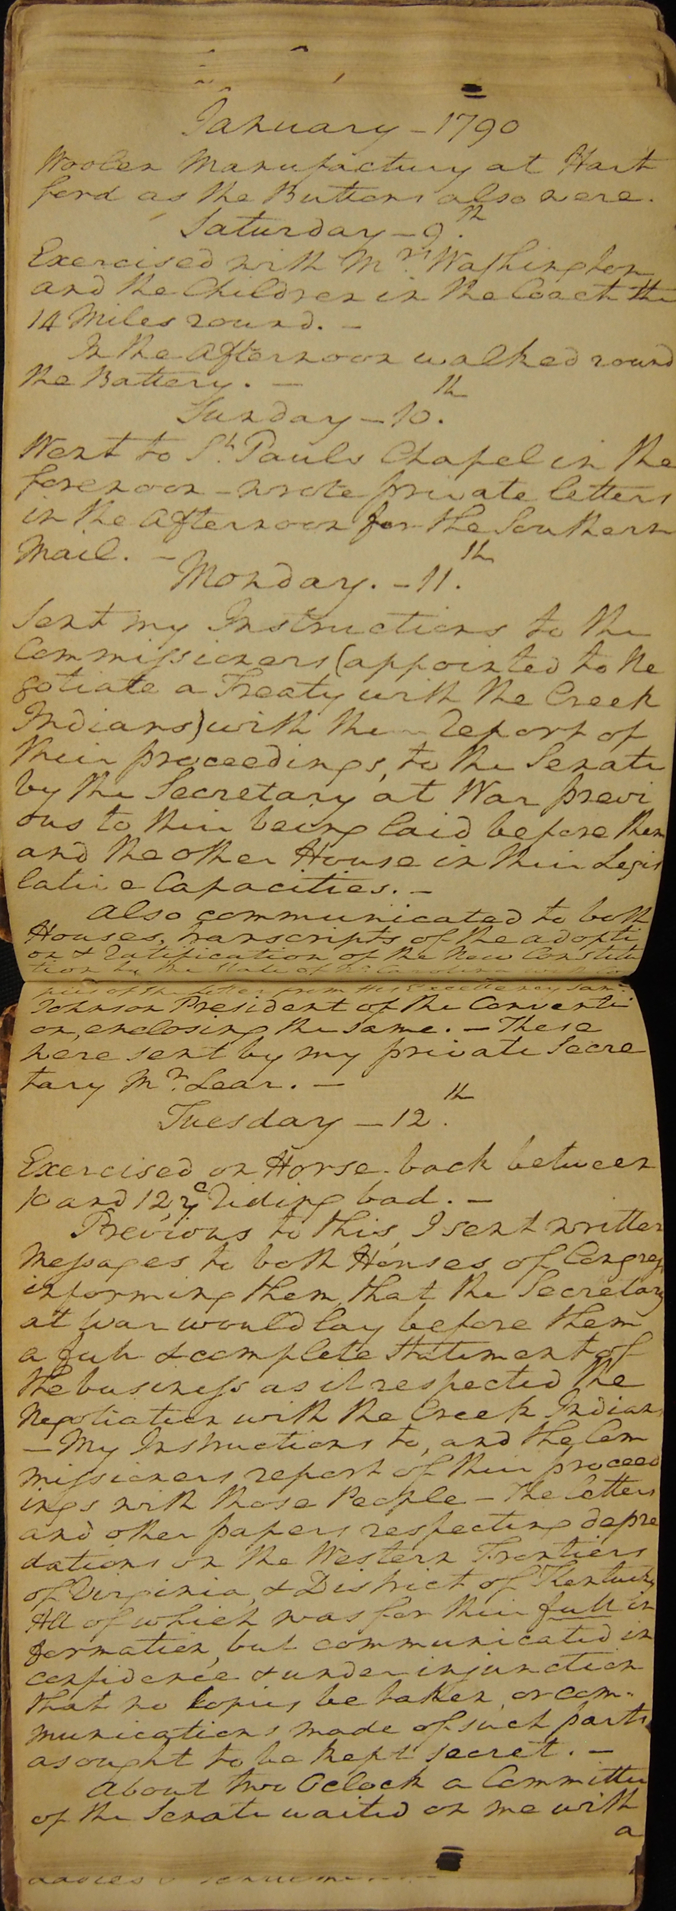 January - 1790
Woolen Manufactury at Hart
ford as the Buttons also were.
Saturday - 9.th
Exercised with Mrs. Washington
and the Children in the Coach the
14 Miles round. -
In the afternoon walked round
the Battery. -
Sunday - 10.th
Went to St. Pauls Chapel in the
forenoon - wrote private letters
in the afternoon for the Southern
Mail. -
Monday. - 11.th
Sent my Instructions to the
Commissioners (appointed to Ne
gotiate a Treaty with the Creek
Indians) with the report of
their proceedings, to the Senate
by the Secretary at War previ
ous to their being laid before them
and the other House in their Legis
lative Capacities. -
Also communicated to both
Houses, transcripts of the adopti
on & ratification of the New Constitu
tion by the State of No. Carolina
pies of the letter from His Excellency Sam.
Johnson President of the Conventi
on, enclosing the same. - These
were sent by my private Secre
tary Mr. Lear. -
Tuesday - 12.th
Exercised on Horse-back between
10 and 12, ye riding bad. -
Previous to this, I sent written
Messages to both Houses of Congress
informing them, that the Secretary
at War would lay before them
a full & complete Statement of
the business as it respected the
Negotiation with the Creek Indians
- My Instructions to, and the Com
missioners report of their proceed
ings with those People - The letters
and other papers respecting depre
dations on the Western Frontiers
of Virginia, & District of Kentucky
All of which was for their full in
formation, but communicated in
confidence & under injunction
that no Copies be taken, or com-
munications made of such parts
as ought to be kept secret. -
About two Oclock a Committee
of the Senate waited on me with
a